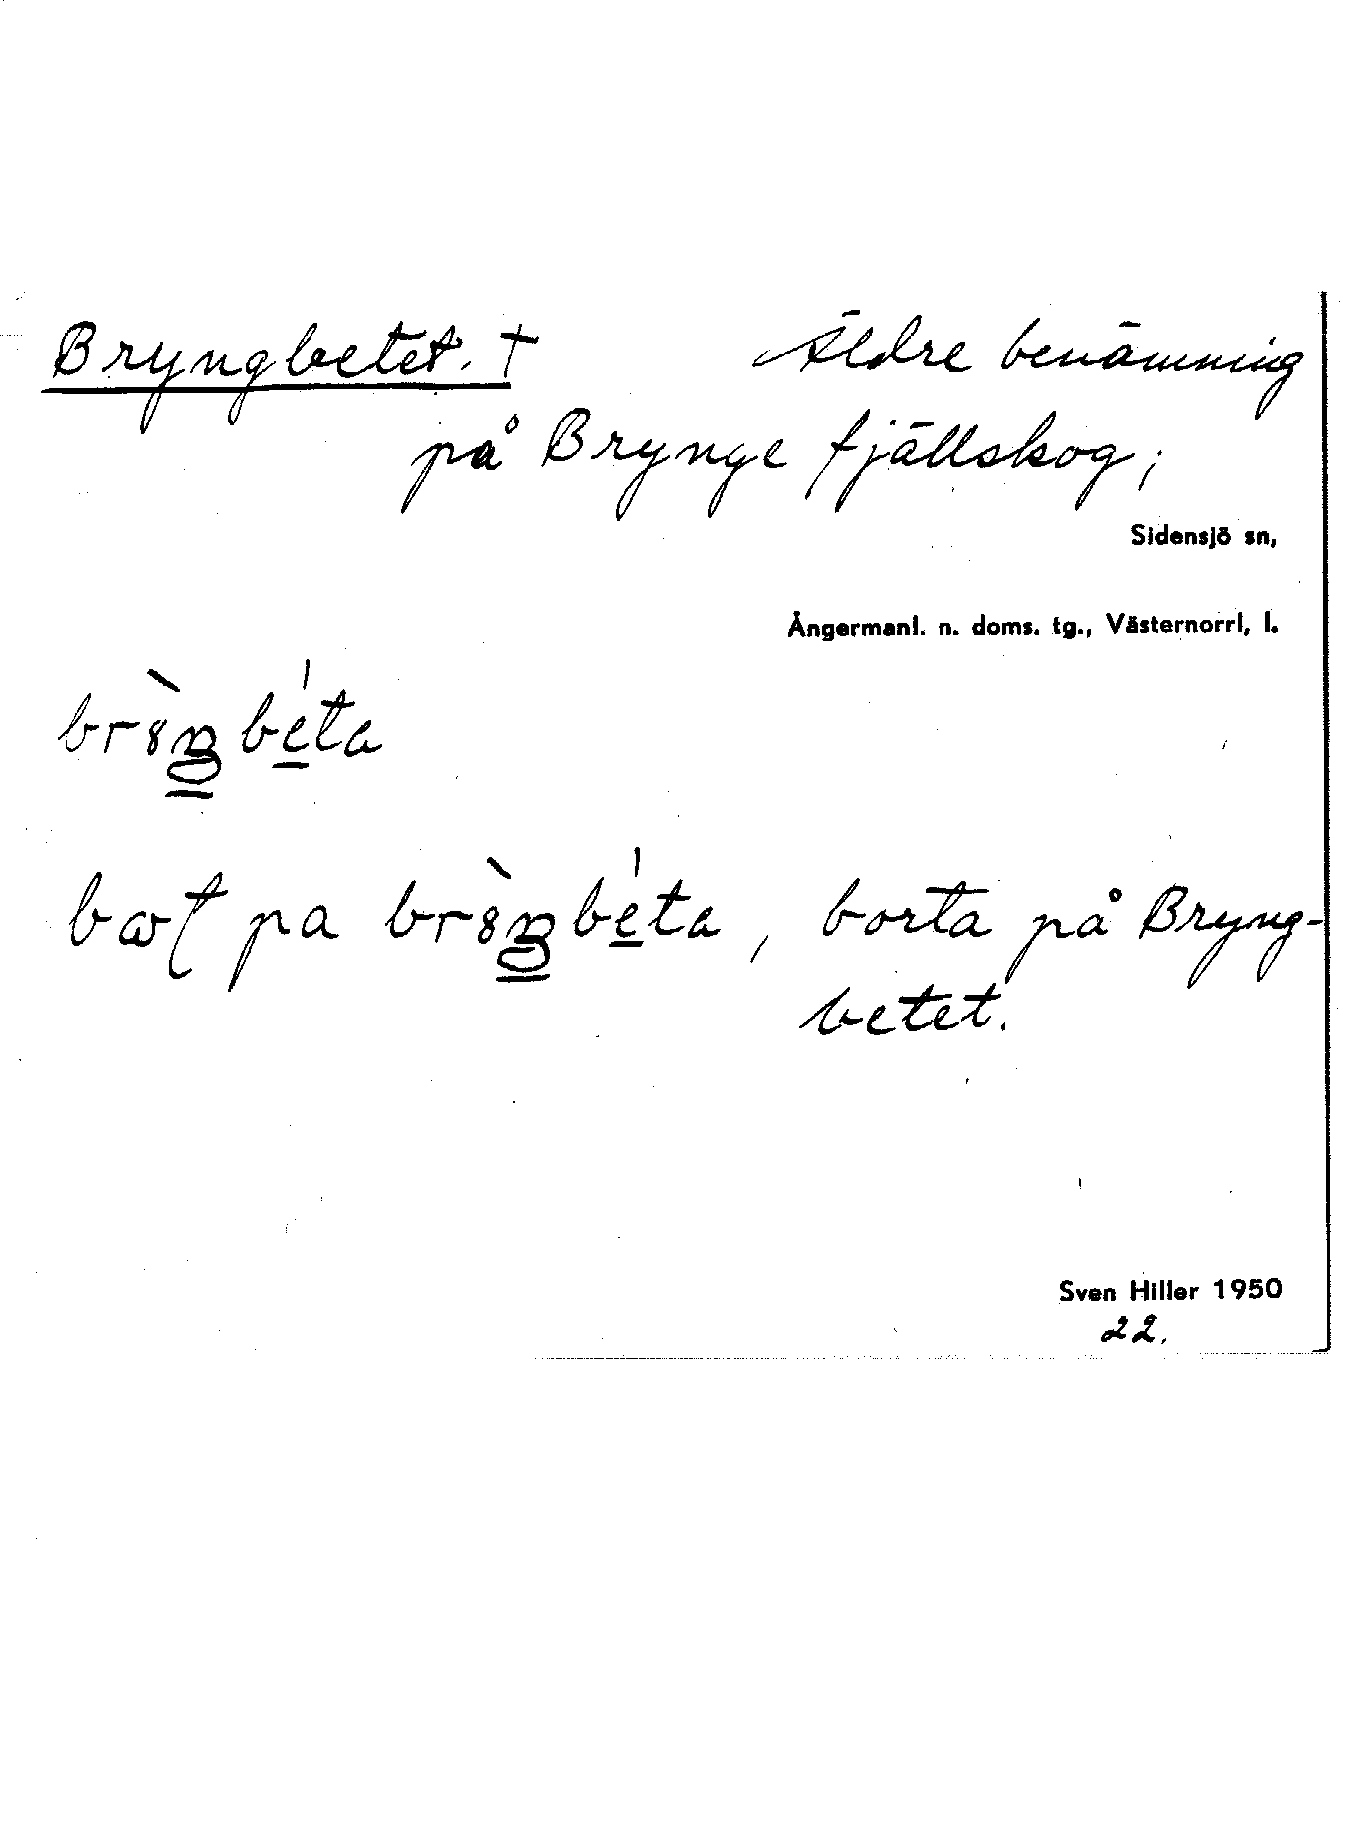 Bryngbetet. † Äldre benämning
på Brynge fjällskog;
Sidensjö sn,
Ångermanl. n. doms. tg., Västernorrl, l.
pa
borta på Bryng-
betet.
Sven Hiller 1950
22.